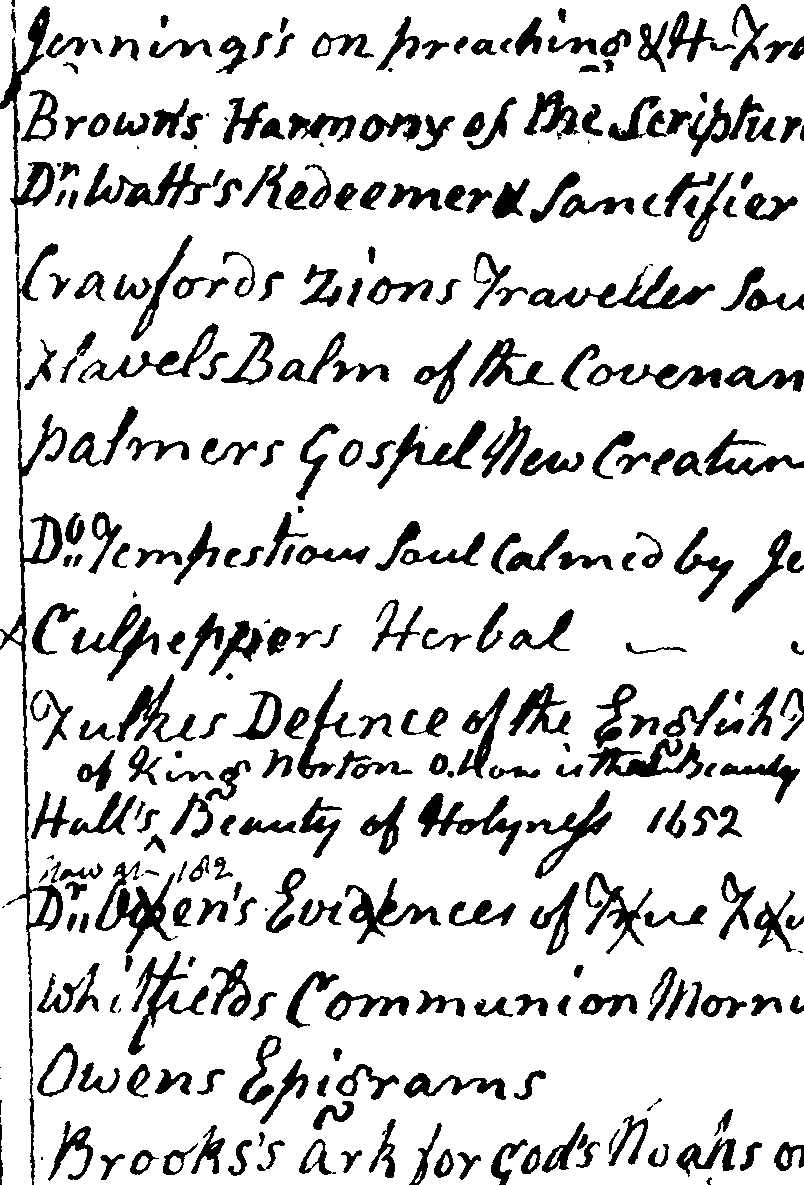 Jennings's on preaching & H Fra
Browns Harmony of the Scriptur
Dr Watts's Redeemer & Sanctifier
Crawfords Zions Traveller Sou
Flavels Balm of the Covenan
palmers Gospel New Creatur
Do Tempestious Soul Calmed by Je
x Culpeppiers Herbal —
Fulkes Defence of the English
of King Norton O. How is the Beauty
Hall's Beauty of Holyness 1652
182
Dr Owen's Evidences of True Fa
Whitfields Communion Morn
Owens Epigrams
Brooks's Ark for God's Noahs o